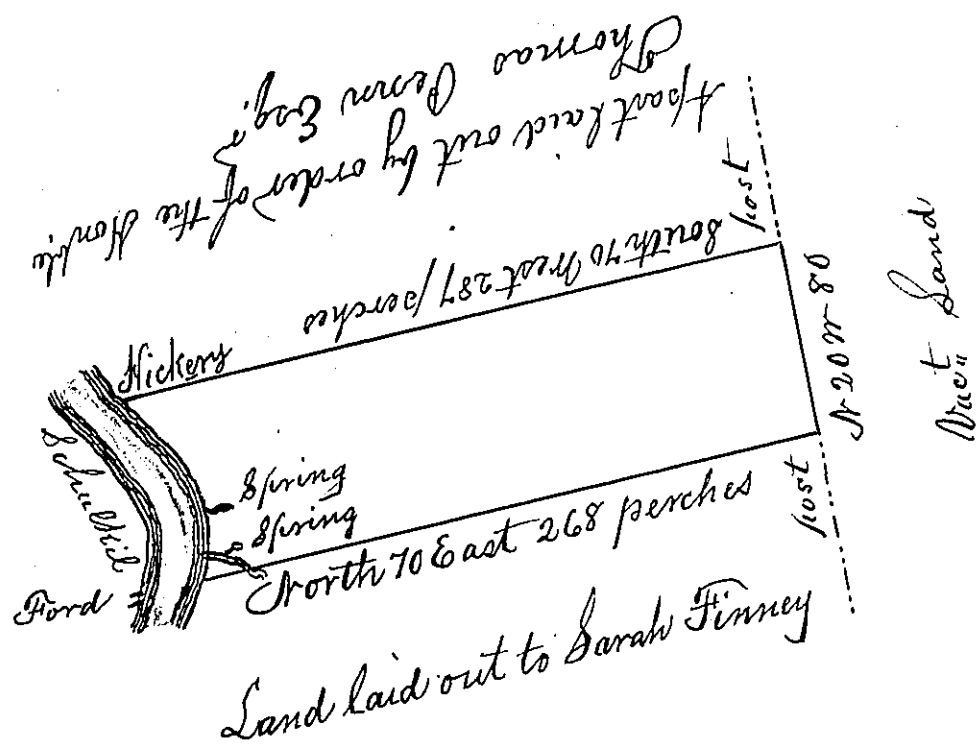 A part laid out by order of the Honble
Thomas Penn Esqr
South 70 West 287 perches
post
Hickery
N 20 W 80
Vact Land
Schuilkil
Spring
Spring
Ford
North 70 East 268 perches
post
Land laid out to Sarah Finney